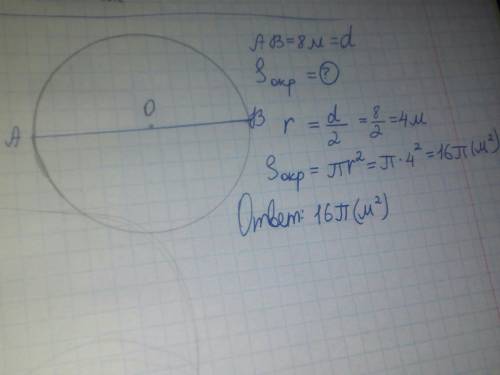 AB=8м=d
Sокр = ?
O
A
B
r = d/2 = 8/2 = 4м
Sокр = πr² = π·4² = 16π(м²)
Ответ: 16π(м²)